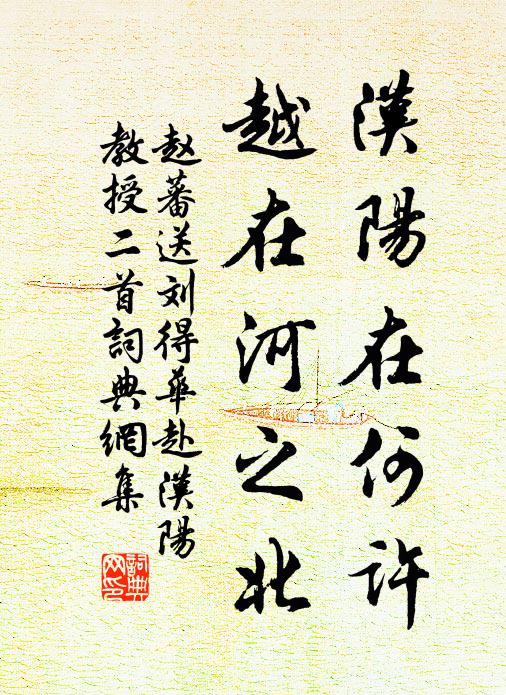 漢陽在何許
越在河之北
赵蕃送刘得華赴漢陽
教授二首詞典網集
詞典
网印